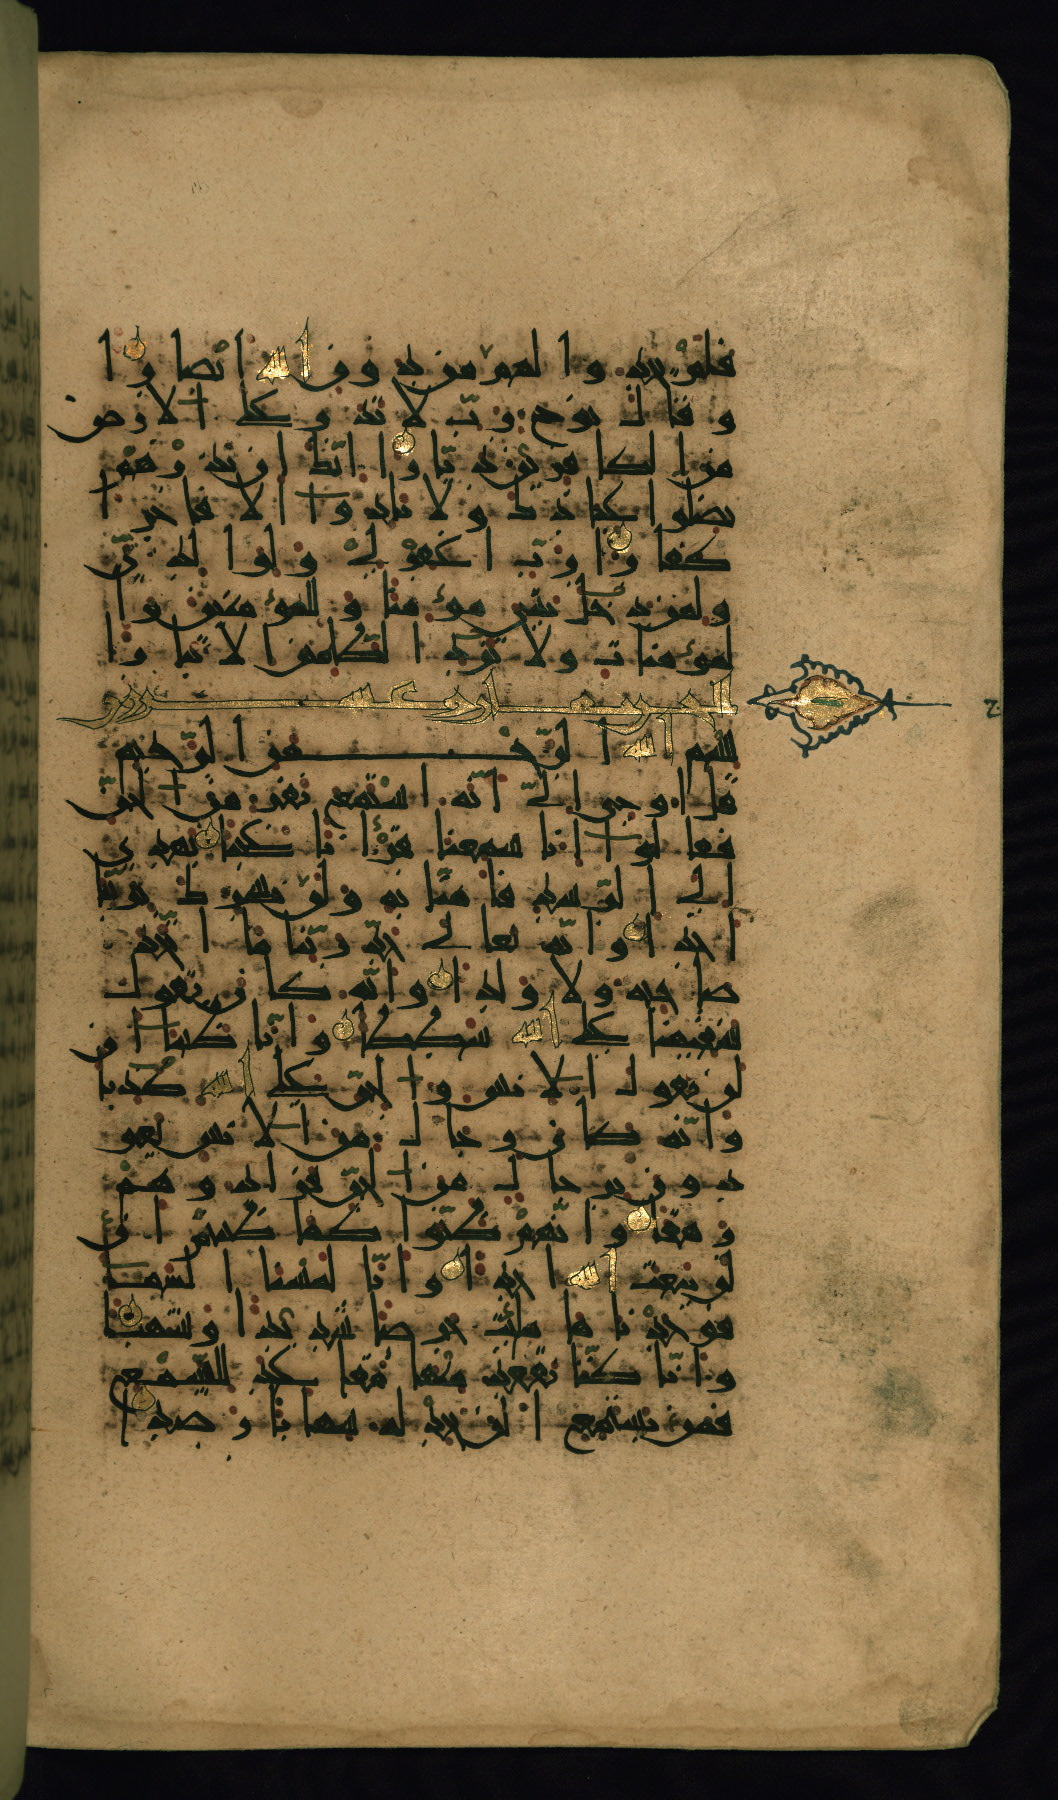 فلم يجدوا لهم من دون الله انصارا
وقال نوح ربّ لا تذر على الارض
من الكافرين ديّارا انّك ان تذرهم
يضلوا عبادك ولا يلدوا الا فاجرا
كفّارا ربّ اغفر لي ولوالديّ
ولمن دخل بيتي مؤمنا وللمؤمنين وا
لمؤمنات ولا تزد الظّالمين الا تبارا
الجن ثمان وعشرون
بسم الله الرّحمن الرّحيم
قل اوحي اليّ انّه استمع نفر من الجنّ
فقالوا انا سمعنا قرأنا عجبا يهدي
الى الرّشد فامنّا به ولن نشرك بربّنا
احدا وانّه تعالى جدّ ربّنا ما اتّخذ
صاحبه ولا ولدا وانّه كان يقول
سفيهنا على الله شططا وانّا ظننا ان
لن تقول الانس والجنّ على الله كذبا
وانّه كان رجال من الانس يعو
ذون برجال من الجنّ فزادوهم
رهقا وانّهم ظنّوا كما ظننتم ان
لن يبعث الله احدا وانّا لمسنا السّما
فوجدناها ملئت حرسا شديدا وشهبا
وانّا كنّا نقعد منها مقاعد للسّمع
فمن يستمع الان يجد له شهابا رصدا